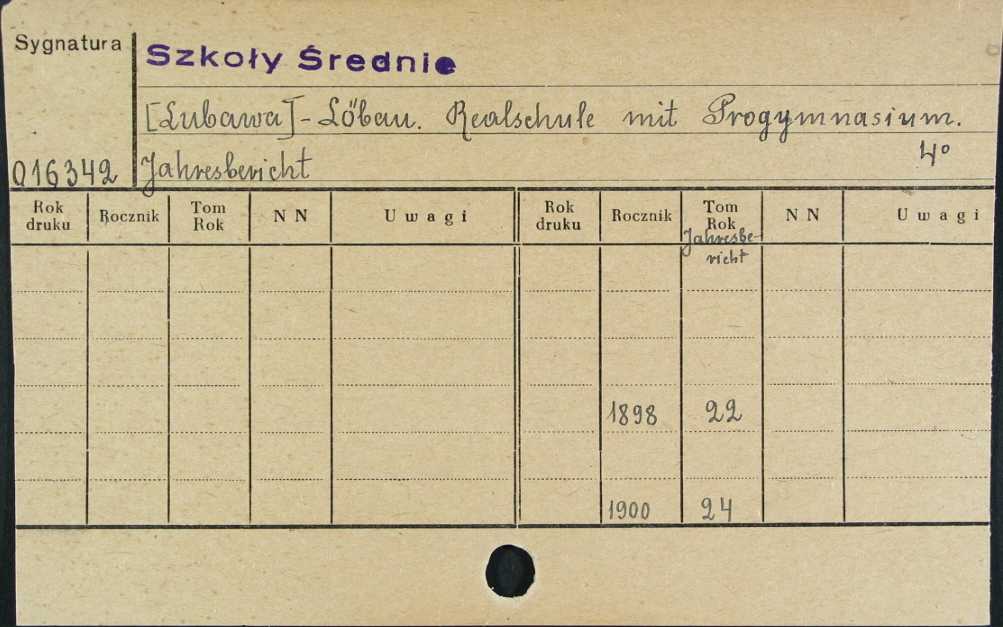 Sygnatura
Szkoły Średnie
[Lubawa] - Löbau. Realschule mit Progymnasium.
016342 Jahresbericht 4°
Rok druku Rocznik Tom Rok NN Uwagi Rok druku Rocznik Tom Rok NN Uwagi
Jahresbe-
richt
1898 22
1900 24